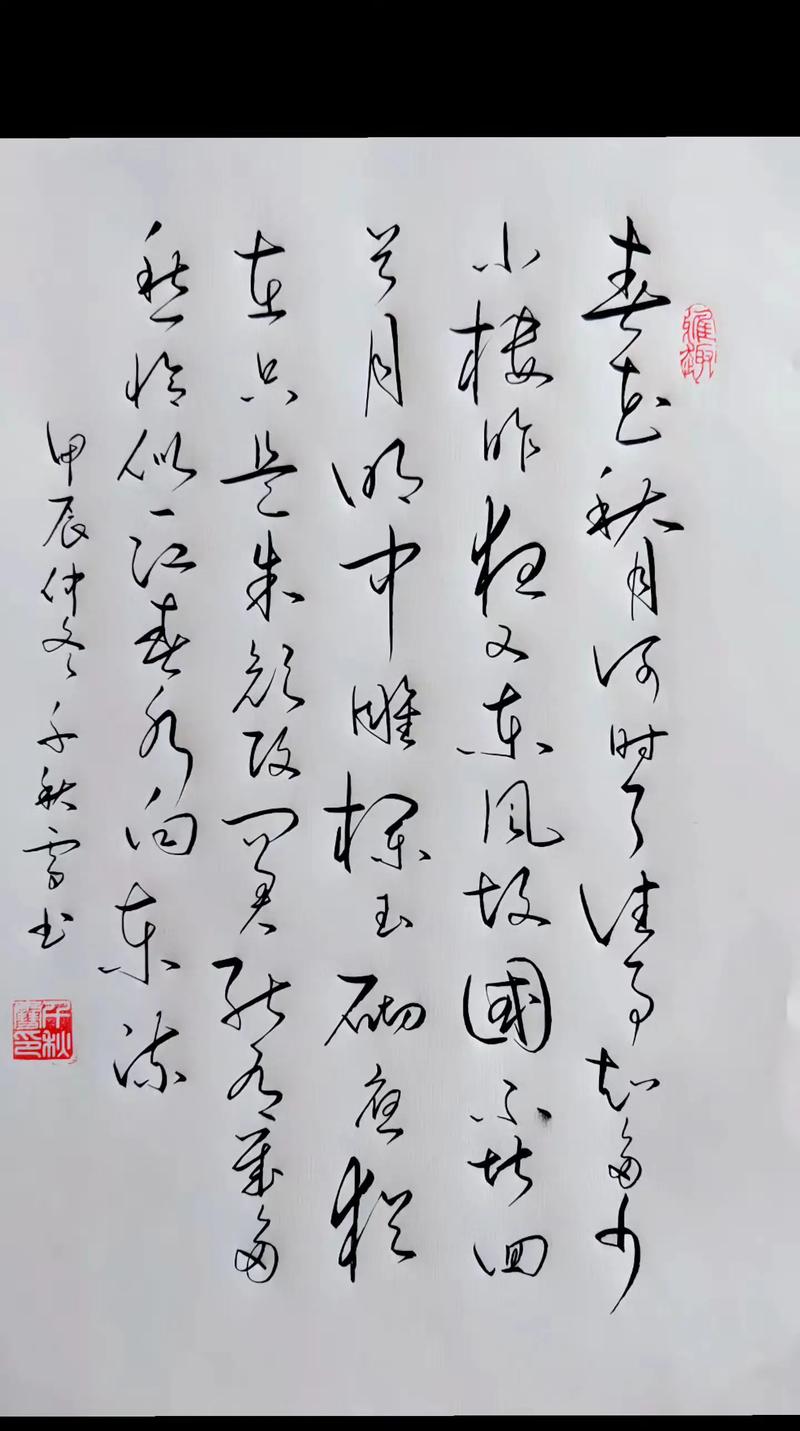 雅趣
春花秋月何时了往事知多少
小楼昨夜又东风故國不堪回
首月明中雕栏玉砌应犹
在只是朱颜改问君能有幾多
愁恰似一江春水向东流
甲辰仲冬千秋雪书
千秋雪印